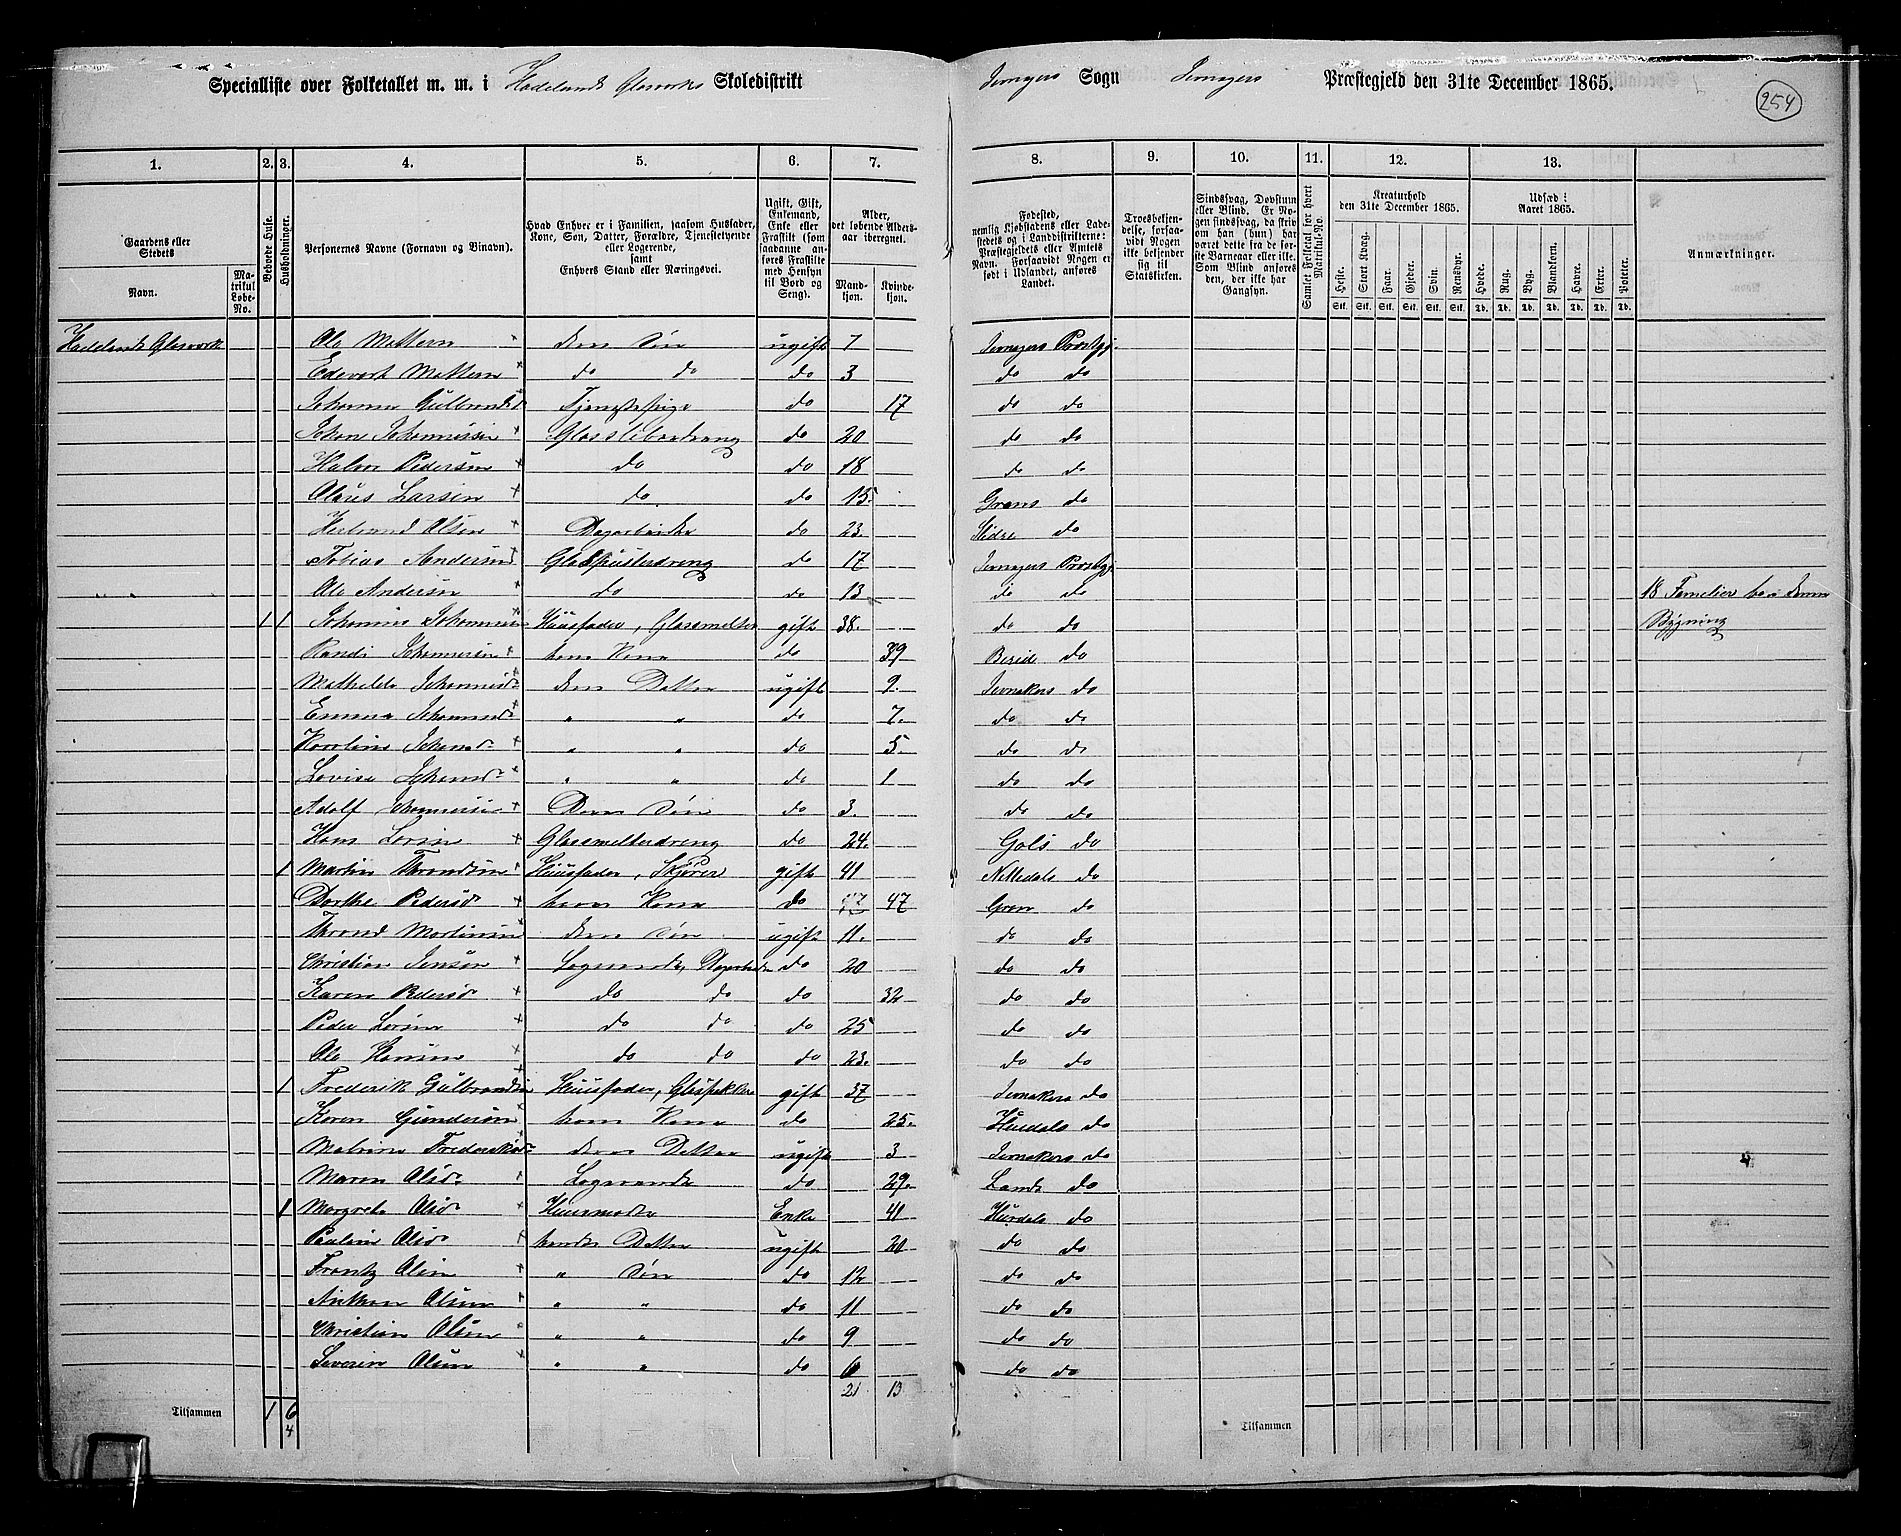 Specialliste over Folketallet m. m. i Hadelands Glasværks Skoledistrikt Jevnagers Sogn Jevnagers Præstegjeld den 31te December 1865.
254
1. 2. 3. 4. 5. 6. 7. 8. 9. 10. 11. 12. 13.
Gaardens eller Stedets
Navn.
Matrikul Løbe-No.
Beboede Huse.
Husholdninger.
Personernes Navne (Fornavn og Binavn).
Hvad Enhver er i Familien, saasom Husfader, Kone, Søn, Datter, Forældre, Tjenestetyende eller Logerende, samt Enhvers Stand eller Næringsvei.
Ugift, Gift, Enkemand, Enke eller Fraskilt (som saadanne anføres Fraskilte med Hensyn til Bord og Seng).
Alder, det løbende Aldersaar iberegnet.
Mandkjøn. Kvindekjøn.
Fødested, nemlig Kjøbstadens eller Ladestedets og i Landdistrikterne: Præstegjeldets eller Amtets Navn. Forsaavidt Nogen er født i Udlandet, anføres Landet.
Troesbekjendelse, forsaavidt Nogen ikke bekjender sig til Statskirken.
Sindssvag, Døvstum eller Blind. Er Nogen sindssvag, da skrives om han (hun) har været dette fra de første Barneaar eller ikke. Som Blind anføres den, der ikke har Gangsyn.
Samlet Folketal for hvert Matrikul-No.
Kreaturhold den 31te December 1865.
Heste. Stort Kvæg. Faar. Gjeder. Svin. Rensdyr.
Stk. Stk. Stk. Stk. Stk. Stk.
Udsæd i Aaret 1865.
Hvede. Rug. Byg. Blandkorn. Havre. Erter. Poteter.
Td. Td. Td. Td. Td. Td. Td.
Anmærkninger.
Hadelands Glasværk Ole Mattern × dens Søn ugift 7 Jevnagers Præstgj.
Edevart Mattern × do do do 3 do do
Johanne Gulbrandsd Tjenestepige do 17 do do
Johan Johannesen × Glassliberdreng do 20 do do
Halvor Pedersen × do do 18 do do
Olaus Larsen × do do 15. Grans do
Herbrand Olsen Dagarbeider do 23. Slidre do
Tobias Andersen Glaspusterdreng do 17 Jevnagers Præstgj
" " Ole Andersen × do do 13 do do 18 Familier bo i denne
1 1 Johannes Johannesen Huusfader, Glassmelter gift 38. do do Bygning
Randi Johannesen × hans Kone do 39 do
Mathilde Johannesd. deres Datter ugift 9. Jevnakers do
Emma Johannesd. " " do 7. do do
Karoline Johansd. × " " do 5 do do
Lovise Johansd. " " do 1 do do
Adolf Johannesen × Deres Søn do 3. do do
Hans Larsen × Glassmelterdreng do 24. Gols do
1 Martin Throndsen Huusfader, gift 41 do
Dorthe Pedersd × hans Kone do 47 Gran do
Thrond Martinsen deres Søn ugift 11. do do
Christian Jensen × Logerende, Dagarbeider do 20 do do
Karen Pedersd × do do do 32 do do
Peder Larsen × do do do 25 do do
Ole Hansen × do do do 23. do do
1 Frederik Gulbrandsen Huusfader, Glaspakker gift 37 Jevnakers do
Karen Gundersen hans Kone do 25. Hurdals do
Frederiksd. deres Datter ugift 3 Jevnakers do
Maren Olsd. Logerende do 29. Lands do
1 Margrete Olsd. × Huusmoder Enke 41 Hurdals do
Pauline Olsd. × hendes Datter ugift 20 do do
Frantz Olsen × " Søn do 12 do do
Anthon Olsen × " " do 11 do do
Christian Olsen " " do 9 do do
Severin Olsen × " " do 6 do do
21 13
Tilsammen 1 6 Tilsammen
4